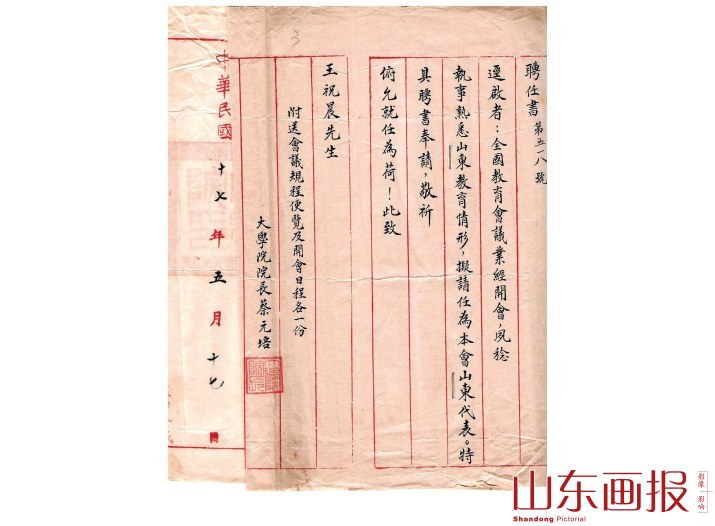 聘任書 第五一八號
逕啟者：全國教育會議業經開會，夙稔
執事熟悉山東教育情形，擬請任為本會山東代表。特
具聘書奉請，敬祈
俯允就任為荷！此致
王祝晨先生
附送會議規程便覽及開會日程各一份
大學院院長蔡元培
中華民國十七年五月十七日
3
山东画报
影像·影响
Shandong Pictorial